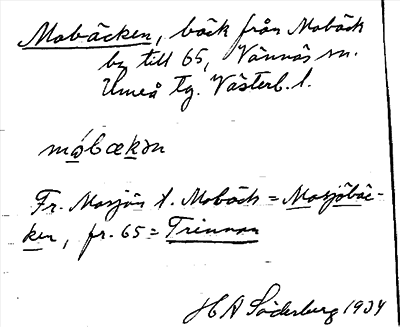 Mobäcken, bäck från Mobäck
by till 65, Vännäs sn.
Umeå tg. Västerb. l.
mo̯bækən
Fr. Mosjön t. Mobäck = Mosjöbäc-
ken, fr. 65 = Trinnan
H A Söderberg 1934